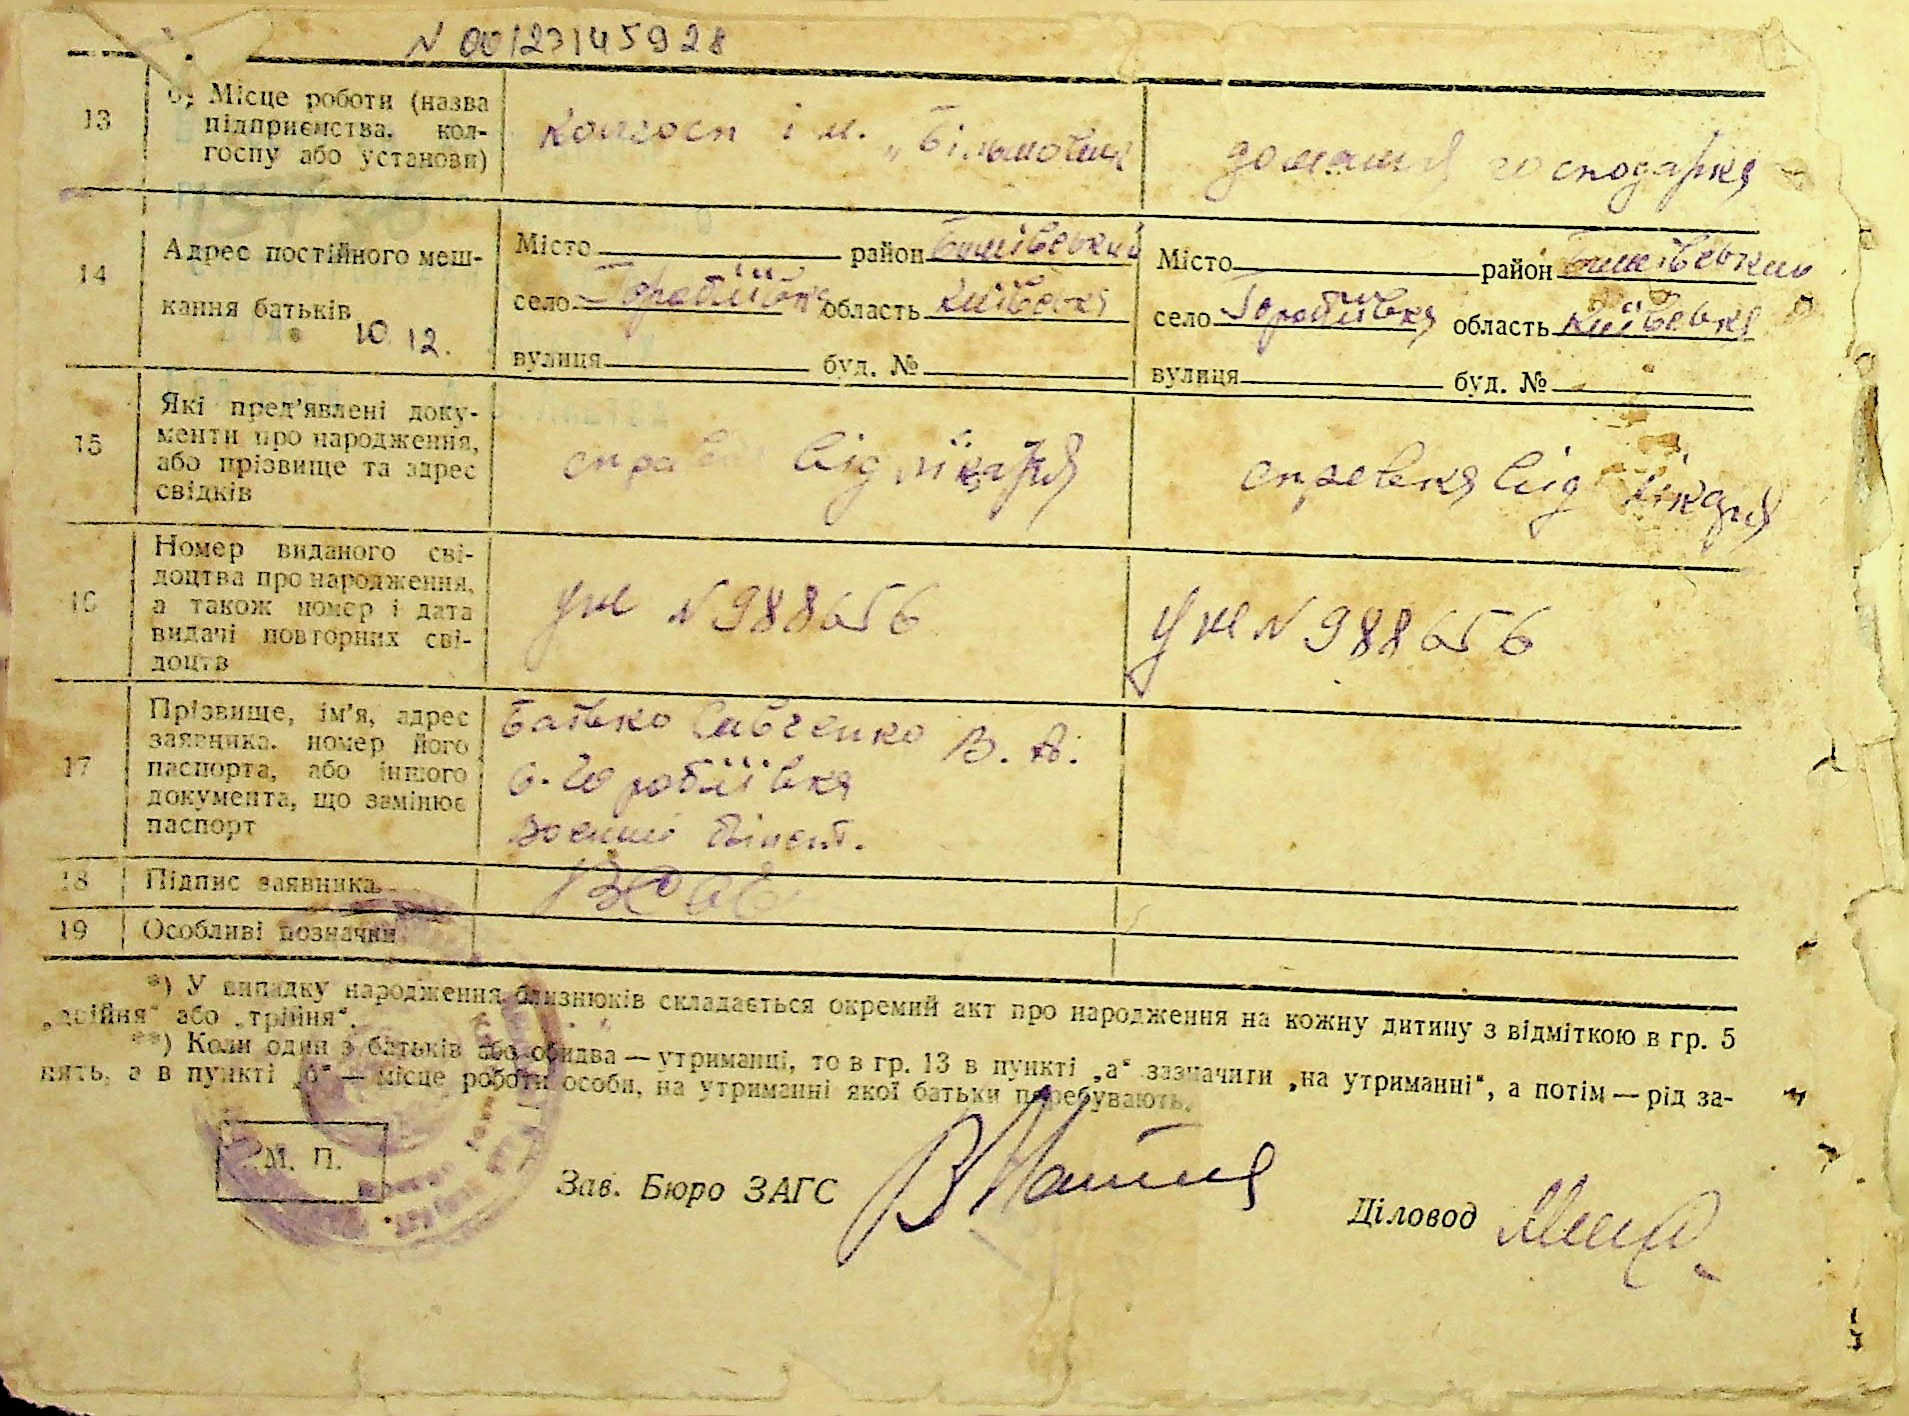 N 00123145928
13
б) Місце роботи (назва
підприємства, кол-
госпу або установи)
колгосп ім. „Більшовик
домашня господарка
14
Адрес постійного меш-
кання батьків
10. 12.
Місто район Бишівський
село Горобіївка область Київська
вулиця буд. №
Місто район Бишівський
село Горобіївка область Київська
вулиця буд. №
15
Які пред'явлені доку-
менти про народження,
або прізвище та адрес
свідків
справка від лікаря
справка від лікаря
16
Номер виданого сві-
доцтва про народження,
а також номер і дата
видачі повторних сві-
доцтв
N 988656
N 988656
17
Прізвище, ім'я, адрес
заявника, номер його
паспорта, або іншого
документа, що замінює
паспорт
Батько Савченко В. А.
с. Горобіївка
воєнний білет.
18
Підпис заявника
19
Особливі позначки
*) У випадку народження близнюків складається окремий акт про народження на кожну дитину з відміткою в гр. 5
„двійня“ або „трійня“.
**) Коли один з батьків або обидва — утриманці, то в гр. 13 в пункті „а“ зазначити „на утриманні“, а потім — рід за-
нять, а в пункті „б“ — місце роботи особи, на утриманні якої батьки перебувають.
М. П.
Зав. Бюро ЗАГС
Діловод